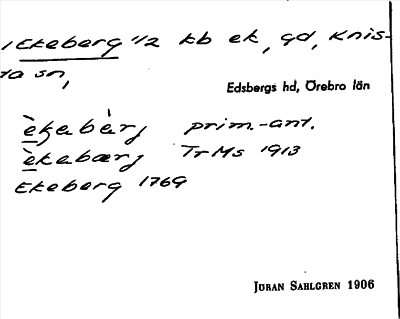 Ekeberg 1/2 kb ek, gd, Knis-
ta sn,
Edsbergs hd, Örebro län
èkabèrj prim.-ant.
èkebærj TrMs 1913
Ekeberg 1769
JÖRAN SAHLGREN 1906